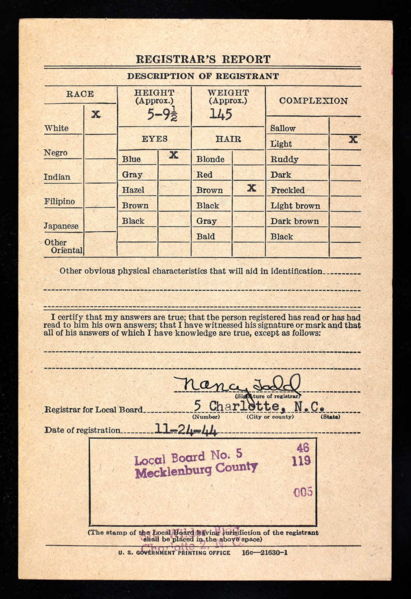 REGISTRAR'S REPORT
DESCRIPTION OF REGISTRANT
RACE
HEIGHT (Approx.)
WEIGHT (Approx.)
COMPLEXION
X
5-9½
145
White
EYES
HAIR
Sallow
Light X
Negro
Blue X
Blonde
Ruddy
Indian
Gray
Red
Dark
Hazel
Brown X
Freckled
Filipino
Brown
Black
Light brown
Japanese
Black
Gray
Dark brown
Other Oriental
Bald
Black
Other obvious physical characteristics that will aid in identification
I certify that my answers are true; that the person registered has read or has had
read to him his own answers; that I have witnessed his signature or mark and that
all of his answers of which I have knowledge are true, except as follows:
Nancy Todd
(Signature of registrar)
Registrar for Local Board 5 Charlotte, N.C.
(Number) (City or county) (State)
Date of registration 11-24-44
Local Board No. 5 46
Mecklenburg County 119
005
(The stamp of the Local Board having jurisdiction of the registrant
shall be placed in the above space)
Charlotte 2, N. C.
U. S. GOVERNMENT PRINTING OFFICE 16c—21630-1